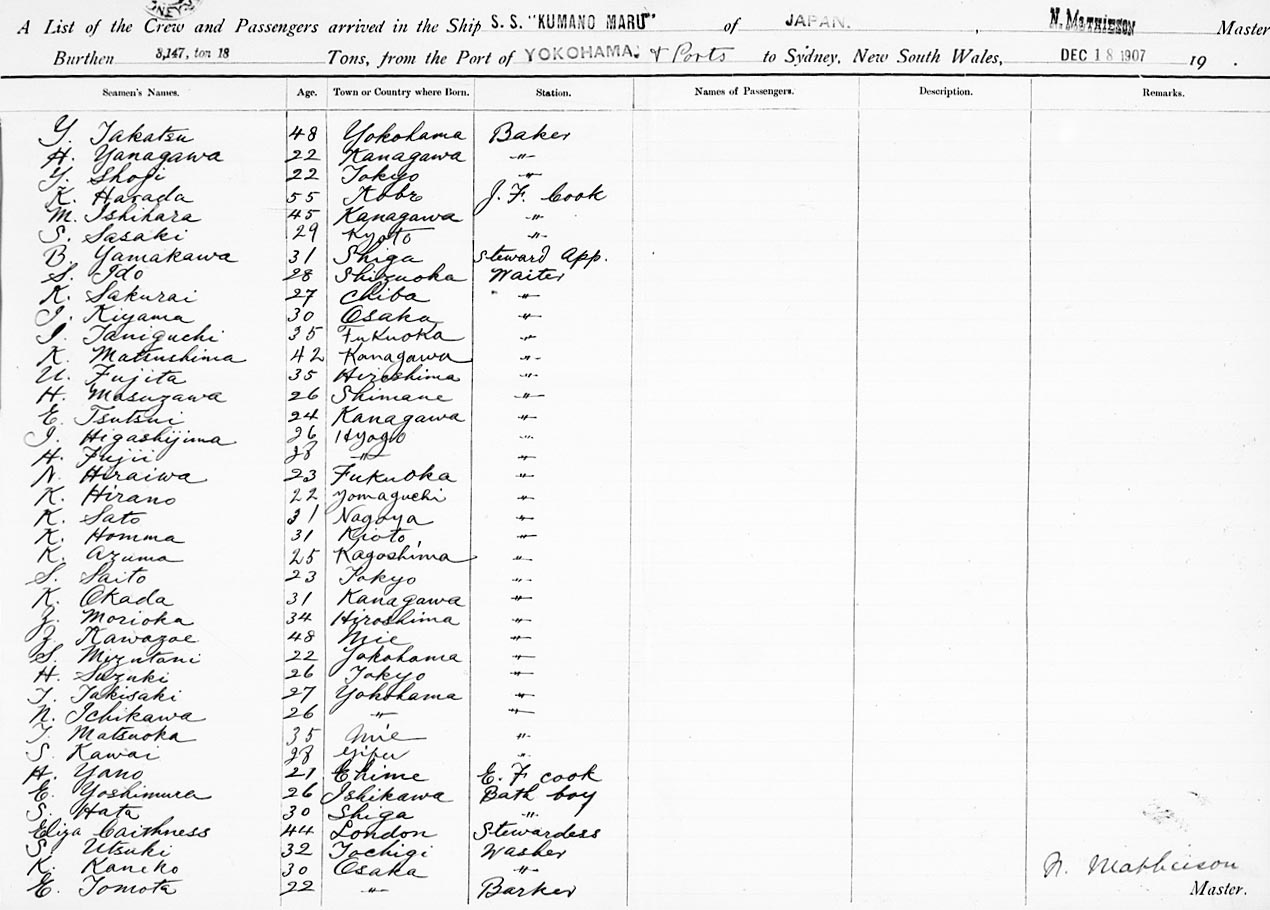 A List of the Crew and Passengers arrived in the Ship S. S. "KUMANO MARU" of JAPAN. , N. MATHIESON Master
Burthen 3,147, ton 18 Tons, from the Port of YOKOHAMA. & Ports to Sydney, New South Wales, DEC 18 1907 19 .
Seamen's Names. Age. Town or Country where Born. Station. Names of Passengers. Description. Remarks.
Y. Takatsu 48 Yokohama Baker
H. Yanagawa 22 Kanagawa "
Y. Shoji 22 Tokyo "
K. Harada 55 Kobe J. F. Cook
M. Ishihara 45 Kanagawa "
S. Sasaki 29 Kyoto "
B. Yamakawa 31 Shiga Steward App.
S. Ido 28 Shizuoka Waiter
K. Sakurai 27 Chiba "
I. Kiyama 30 Osaka "
I. Taniguchi 35 Fukuoka "
K. Matsushima 42 Kanagawa "
U. Fujita 35 Hiroshima "
H. Masuzawa 26 Shimane "
E. Tsutsui 24 Kanagawa "
I. Higashijima 26 Hyogo "
H. Fujii 28 " "
N. Hiraiwa 23 Fukuoka "
K. Hirano 22 Yamaguchi "
K. Sato 31 Nagoya "
K. Homma 31 Kioto "
K. Azuma 25 Kagoshima "
S. Saito 23 Tokyo "
K. Okada 31 Kanagawa "
Z. Morioka 34 Hiroshima "
Z. Kawazoe 48 Mie "
S. Mizutani 22 Yokohama "
H. Suzuki 26 Tokyo "
T. Takisaki 27 Yokohama "
N. Ichikawa 26 " "
T. Matsuoka 35 Mie "
S. Kawai 28 Gifu "
H. Yano 21 Ehime E. F cook
E. Yoshimura 26 Ishikawa Bath boy
S. Hata 30 Shiga "
Eliza Caithness 44 London Stewardess
S. Utsuki 32 Tochigi Washer
K. Kaneko 30 Osaka " N. Mathieson
E. Tomota 22 " Barker Master.